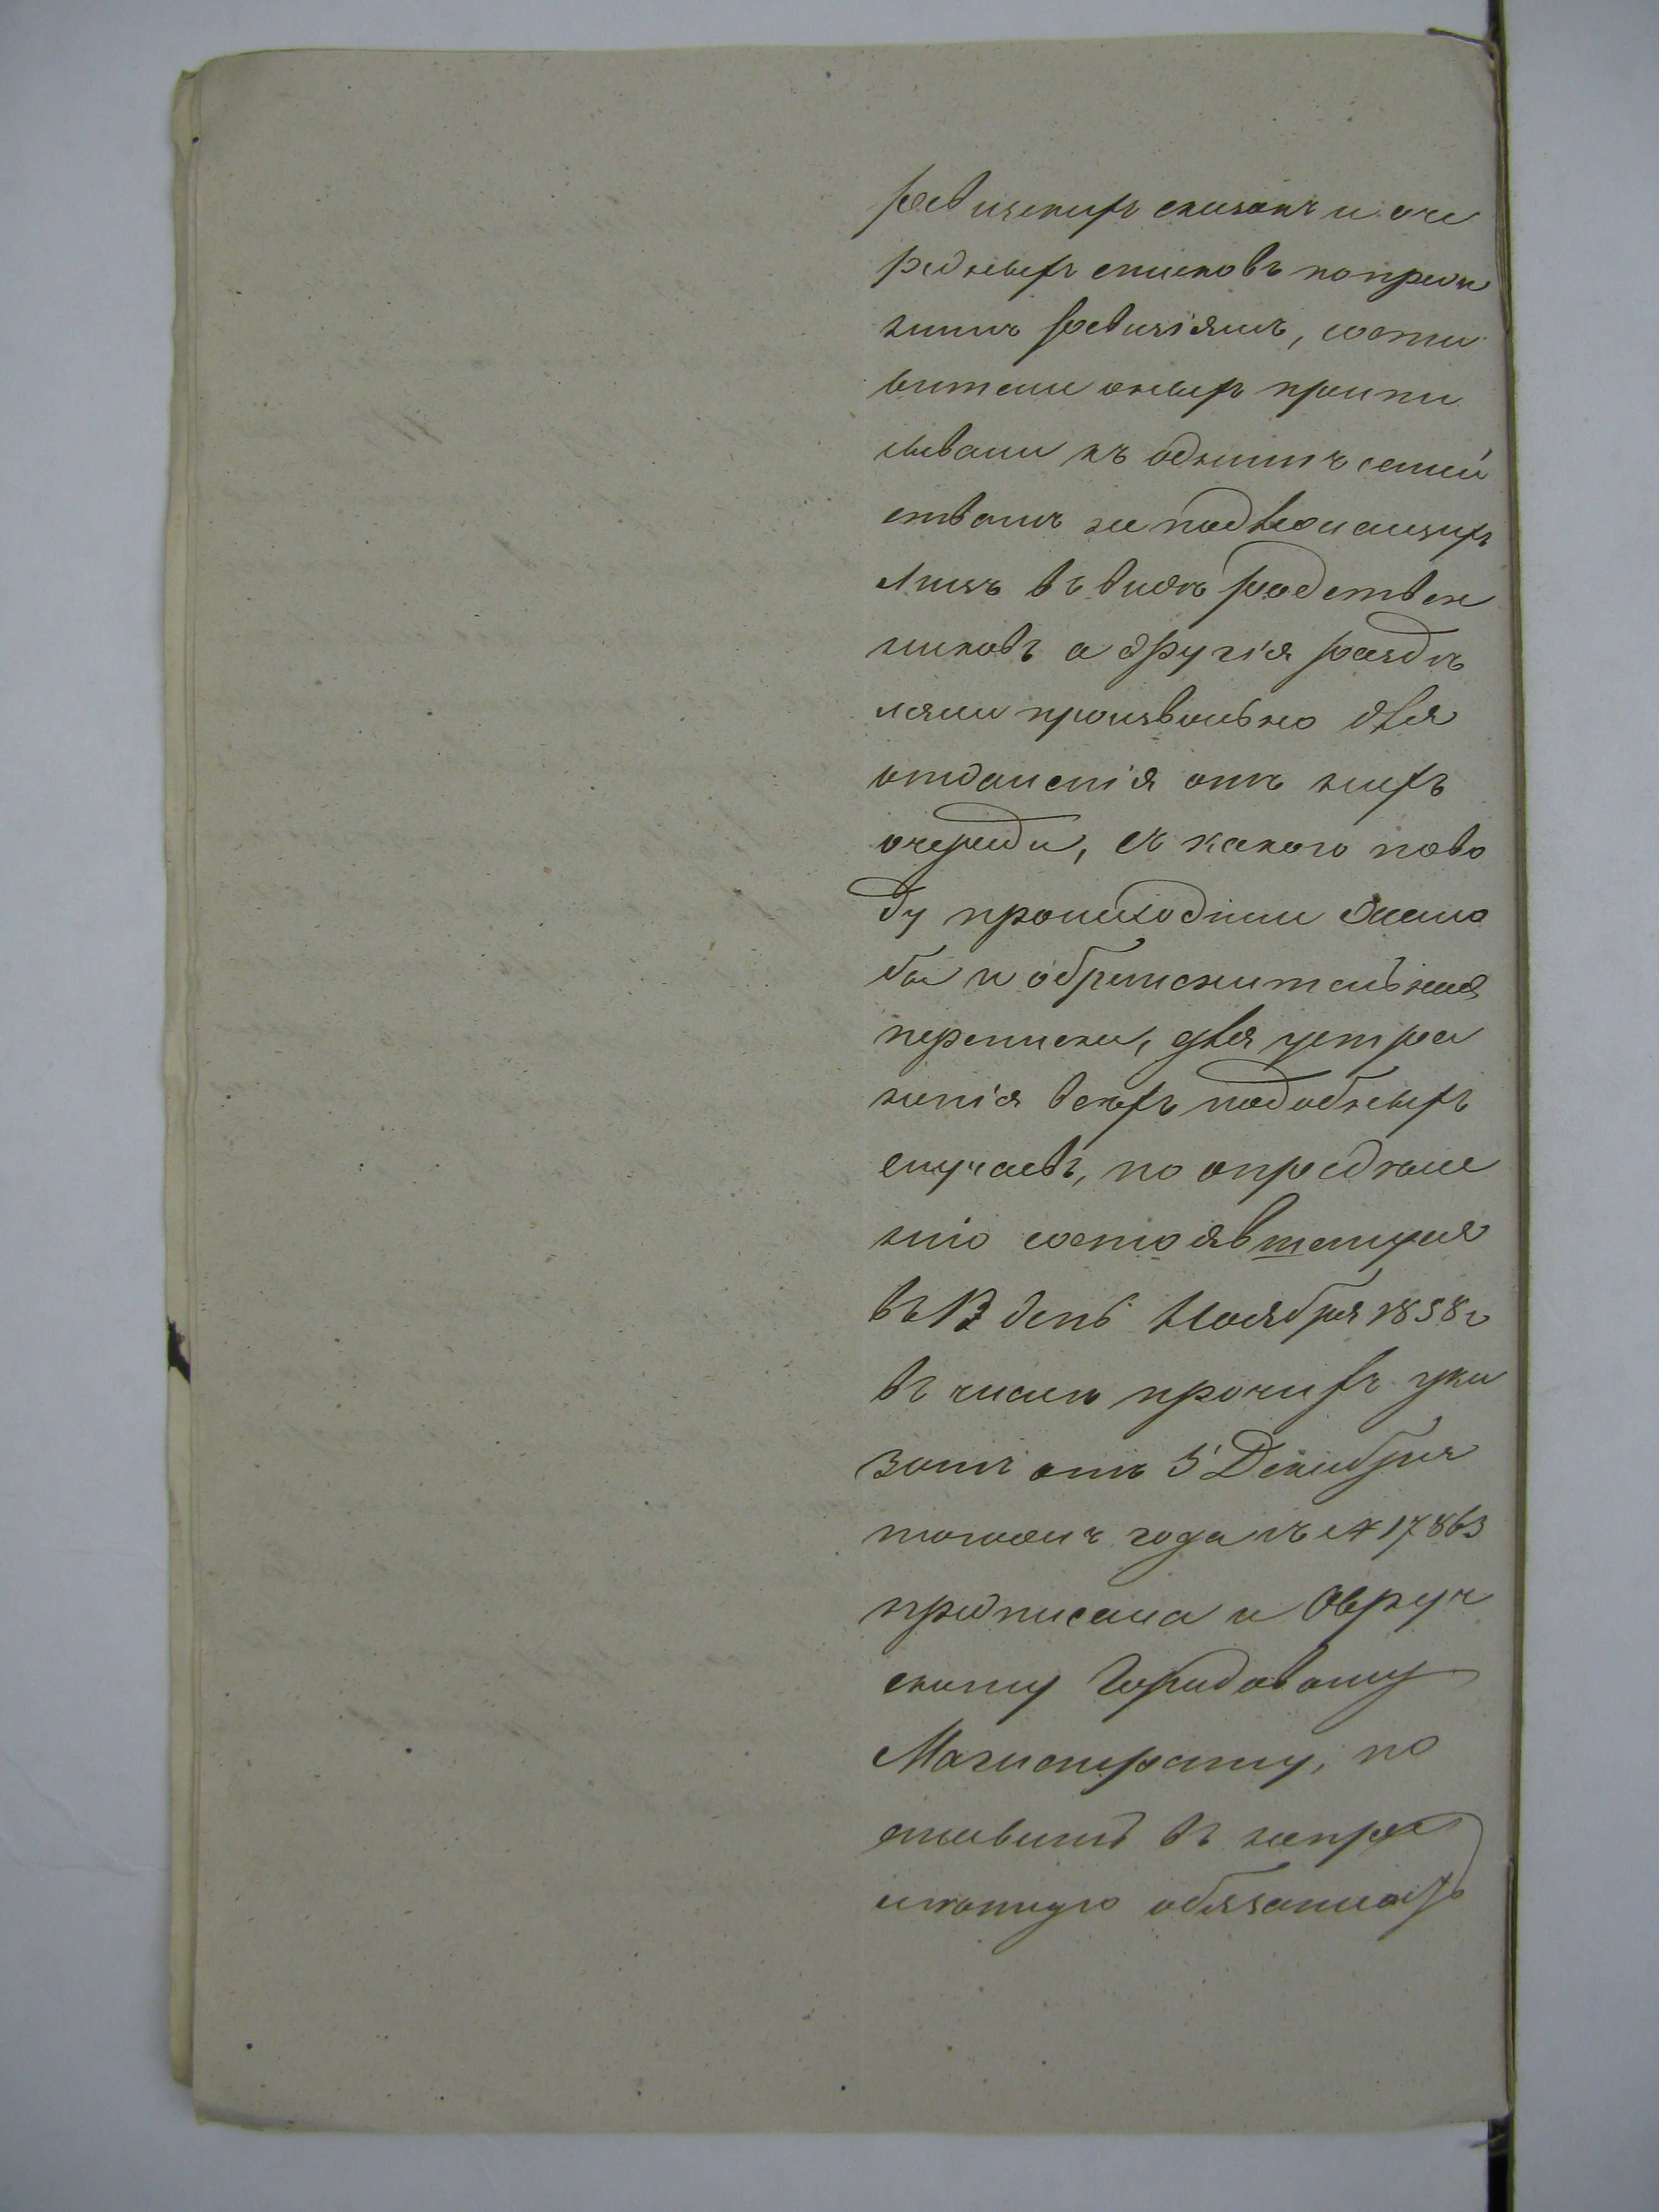 ревизскихъ сказокъ и оче
редныхъ списковъ по преж
нимъ ревизіямъ, соста
вители оныхъ приписы
сывали къ однимъ семей
ствамъ не подлежащихъ
лицъ въ видѣ родствен
никовъ а другія раздѣ
ляли произвольно для
отдаленія отъ нихъ
очереди, съ какого пово
ду происходили жало
бы и обременительная
переписка, для устра
ненія всѣхъ подобныхъ
случаевъ, по опредѣле
нію состоявшемуся
въ 13 день Ноября 1858 г
въ числѣ прочихъ ука
зомъ отъ 5 Декабря
тогожъ года за № 17863
предписала и Овруч
скому Городовому
Магистрату, по
ставивъ въ непре
мѣнную обязанность